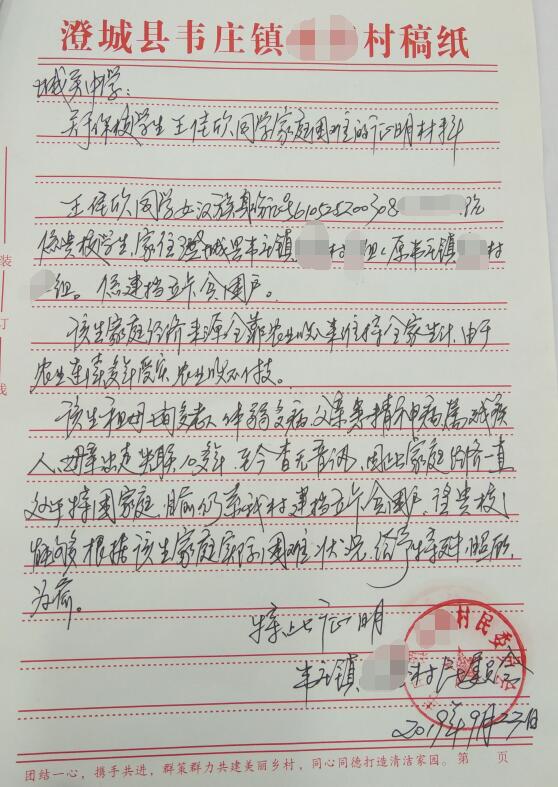 澄城县韦庄镇 村稿纸
城关中学:
关于你校学生王佳欣同学家庭困难的证明材料
王佳欣同学女汉族身份证号610525200308 . 现
系贵校学生,家住澄城县韦庄镇 村 组(原韦庄镇 村
组。系建档立卡贫困户。
该生家庭经济来源全靠农业收入来维持全家生计,由于
农业连续多年受灾,农业收不付支。
该生祖母 体弱多病,父亲患精神病属残疾
人,母亲出走失联10多年,至今杳无音讯,因此家庭经济一直
处于特困家庭,目前仍系我村建档立卡贫困户,望贵校
能够根据该生家庭实际困难状况,给予特殊照顾
为荷。
特此证明
韦庄镇 村 委会
村民委员会
2019年9月23日
装
订
线
团结一心,携手共进,群策群力共建美丽乡村,同心同德打造清洁家园。 第 页